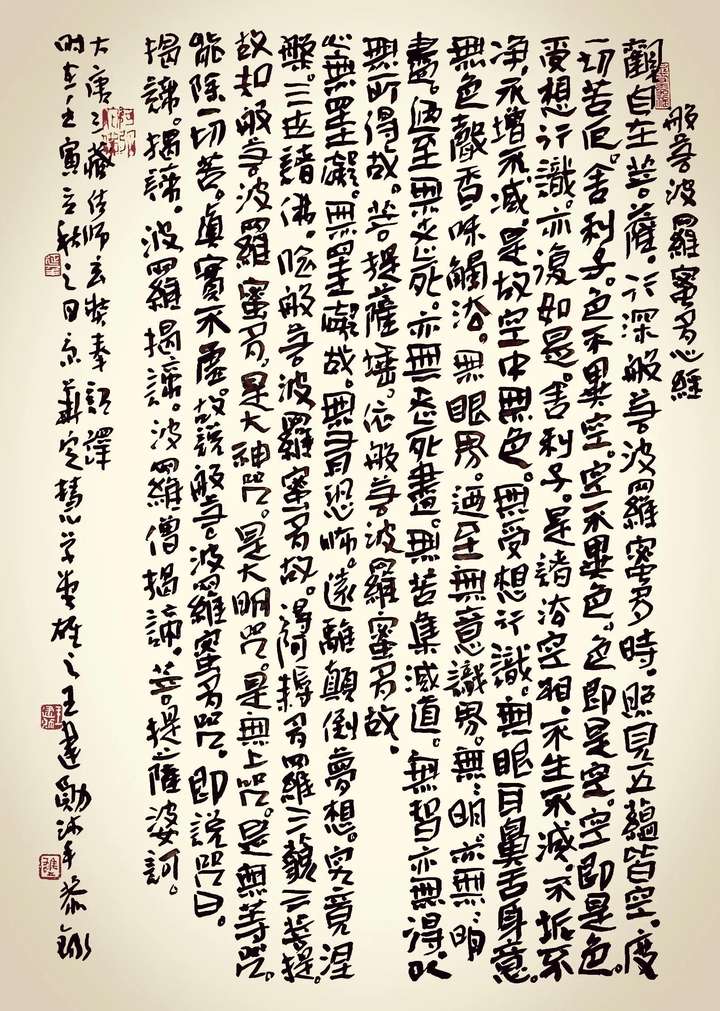 般若波羅蜜多心經
觀自在菩薩。行深般若波羅蜜多時。照見五蘊皆空。度
一切苦厄。舍利子。色不異空。空不異色。色即是空。空即是色。
受想行識。亦復如是。舍利子。是諸法空相。不生不滅。不垢不
净。不增不減。是故空中無色。無受想行識。無眼耳鼻舌身意。
無色聲香味觸法。無眼界。迺至無意識界。無無明。亦無無明
盡。迺至無老死。亦無老死盡。無苦集滅道。無智亦無得。以
無所得故。菩提薩埵。依般若波羅蜜多故。
心無罣礙。無罣礙故。無有恐怖。遠離顛倒夢想。究竟涅
槃。三世諸佛。依般若波羅蜜多故。得阿耨多羅三藐三菩提。
故知般若波羅蜜多。是大神咒。是大明咒。是無上咒。是無等咒。
能除一切苦。真實不虛。故說般若波羅蜜多咒。即說咒曰。
揭諦。揭諦。波羅揭諦。波羅僧揭諦。菩提薩婆訶。
大唐三藏法師玄奘奉詔譯
時在壬寅立秋之日京華定慧 之王建勛沐手恭錄